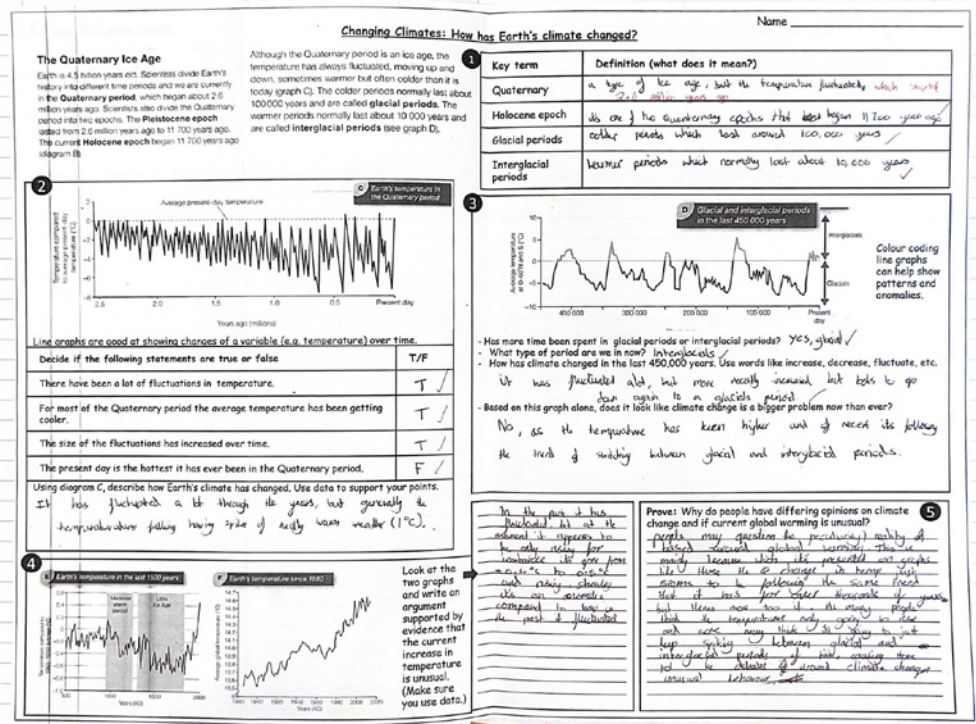 Name
Changing Climates: How has Earth's climate changed?
The Quaternary Ice Age
Earth is 4.5 billion years old. Scientists divide Earth's
history into different time periods and we are currently
in the Quaternary period, which began about 2.6
million years ago. Scientists also divide the Quaternary
period into two epochs. The Pleistocene epoch
lasted from 2.6 million years ago to 11 700 years ago.
The current Holocene epoch began 11 700 years ago
(diagram B).
Although the Quaternary period is an ice age, the
temperature has always fluctuated, moving up and
down, sometimes warmer but often colder than it is
today (graph C). The colder periods normally last about
100 000 years and are called glacial periods. The
warmer periods normally last about 10 000 years and
are called interglacial periods (see graph D).
1
Key term
Definition (what does it mean?)
Quaternary
a type of ice age, but the temperature fluctuated, which started
2.6 million years ago
Holocene epoch
its one of two quaternary epochs that began 11 700 years ago
Glacial periods
colder periods which last around 100,000 years
Interglacial
periods
warmer periods which normally last about 10,000 years
2
C Earth's temperature in
the Quaternary period
Average present-day temperature
Temperature compared
to average present-day
temperature (°C)
2
0
-2
-4
-6
-8
2.5 2.0 1.5 1.0 0.5 Present day
Years ago (millions)
Line graphs are good at showing changes of a variable (e.g. temperature) over time.
Decide if the following statements are true or false T/F
There have been a lot of fluctuations in temperature. T
For most of the Quaternary period the average temperature has been getting
cooler. T
The size of the fluctuations has increased over time. T
The present day is the hottest it has ever been in the Quaternary period. F
Using diagram C, describe how Earth's climate has changed. Use data to support your points.
It has fluctuated a lot through the years, but generally the
falling having spike of really warm weather (1°C).
3
D Glacial and interglacial periods
in the last 450 000 years
Interglacials
Glacials
10
5
0
-5
-10
400 000 300 000 200 000 100 000 Present
day
Colour coding
line graphs
can help show
patterns and
anomalies.
- Has more time been spent in glacial periods or interglacial periods? Yes, glacial
- What type of period are we in now? Interglacials
- How has climate changed in the last 450,000 years. Use words like increase, decrease, fluctuate, etc.
it has fluctuated alot, but more recently increased but looks to go
down again to a glacials period
- Based on this graph alone, does it look like climate change is a bigger problem now than ever?
No, as the temperature has been higher and of recent its following
the trend of switching between glacial and interglacial periods.
4
E Earth's temperature in the last 1500 years
Medieval
warm
period
Little
Ice Age
500 1000 1500 2000
Years (AD)
F Earth's temperature since 1880
Years (AD)
Look at the
two graphs
and write an
argument
supported by
evidence that
the current
increase in
temperature
is unusual.
(Make sure
you use data.)
In the past it has
fluctuated, but at the
moment it appears to
be only rising for
its gone from
and rising
its an
compared to how in
the past it fluctuated
5
Prove: Why do people have differing opinions on climate
change and if current global warming is unusual?
people may question the reality of
based around global warming. This is
mainly because when its presented on graphs
like these the change in temp just
seems to be following the same trend
that it has for over thousands of years.
but theres now too if its many people
think the temperatures only going to rise
and some may think its going to just
keep spiking between glacial and
interglacial periods of time, causing there
to be debates around climate changes
unusual behaviour.